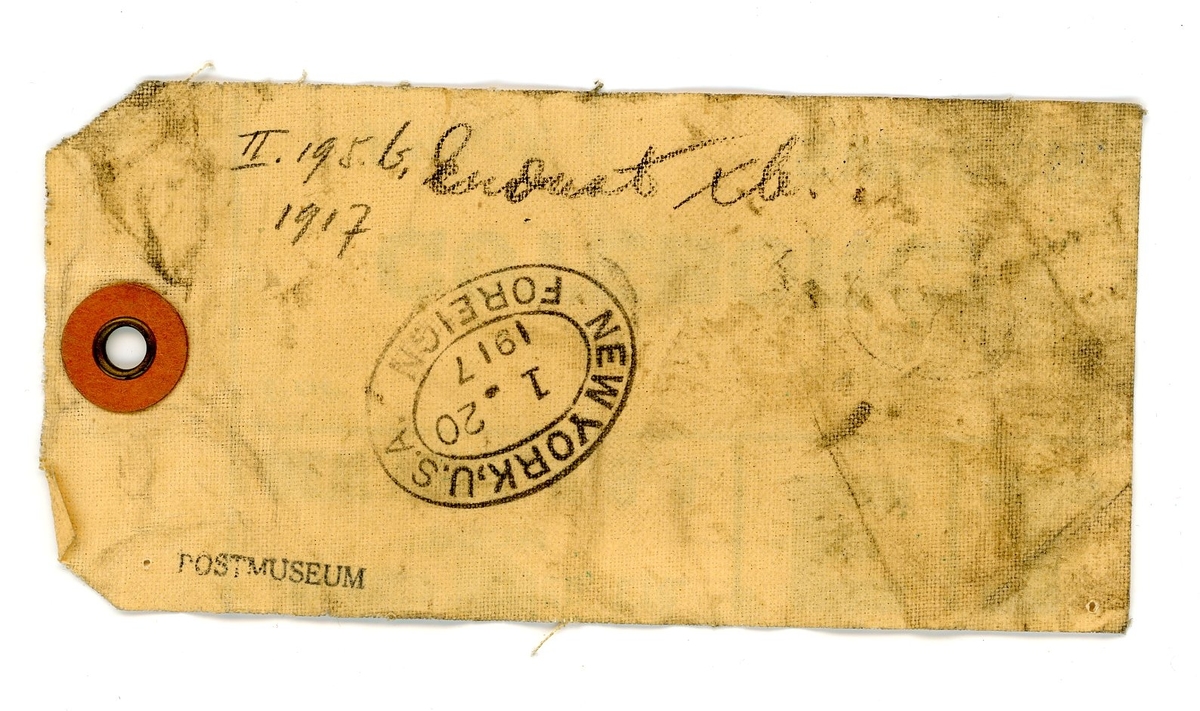 II. 195. b,
1917
NEW YORK, U.S.A
FOREIGN
1 • 20
1917
POSTMUSEUM